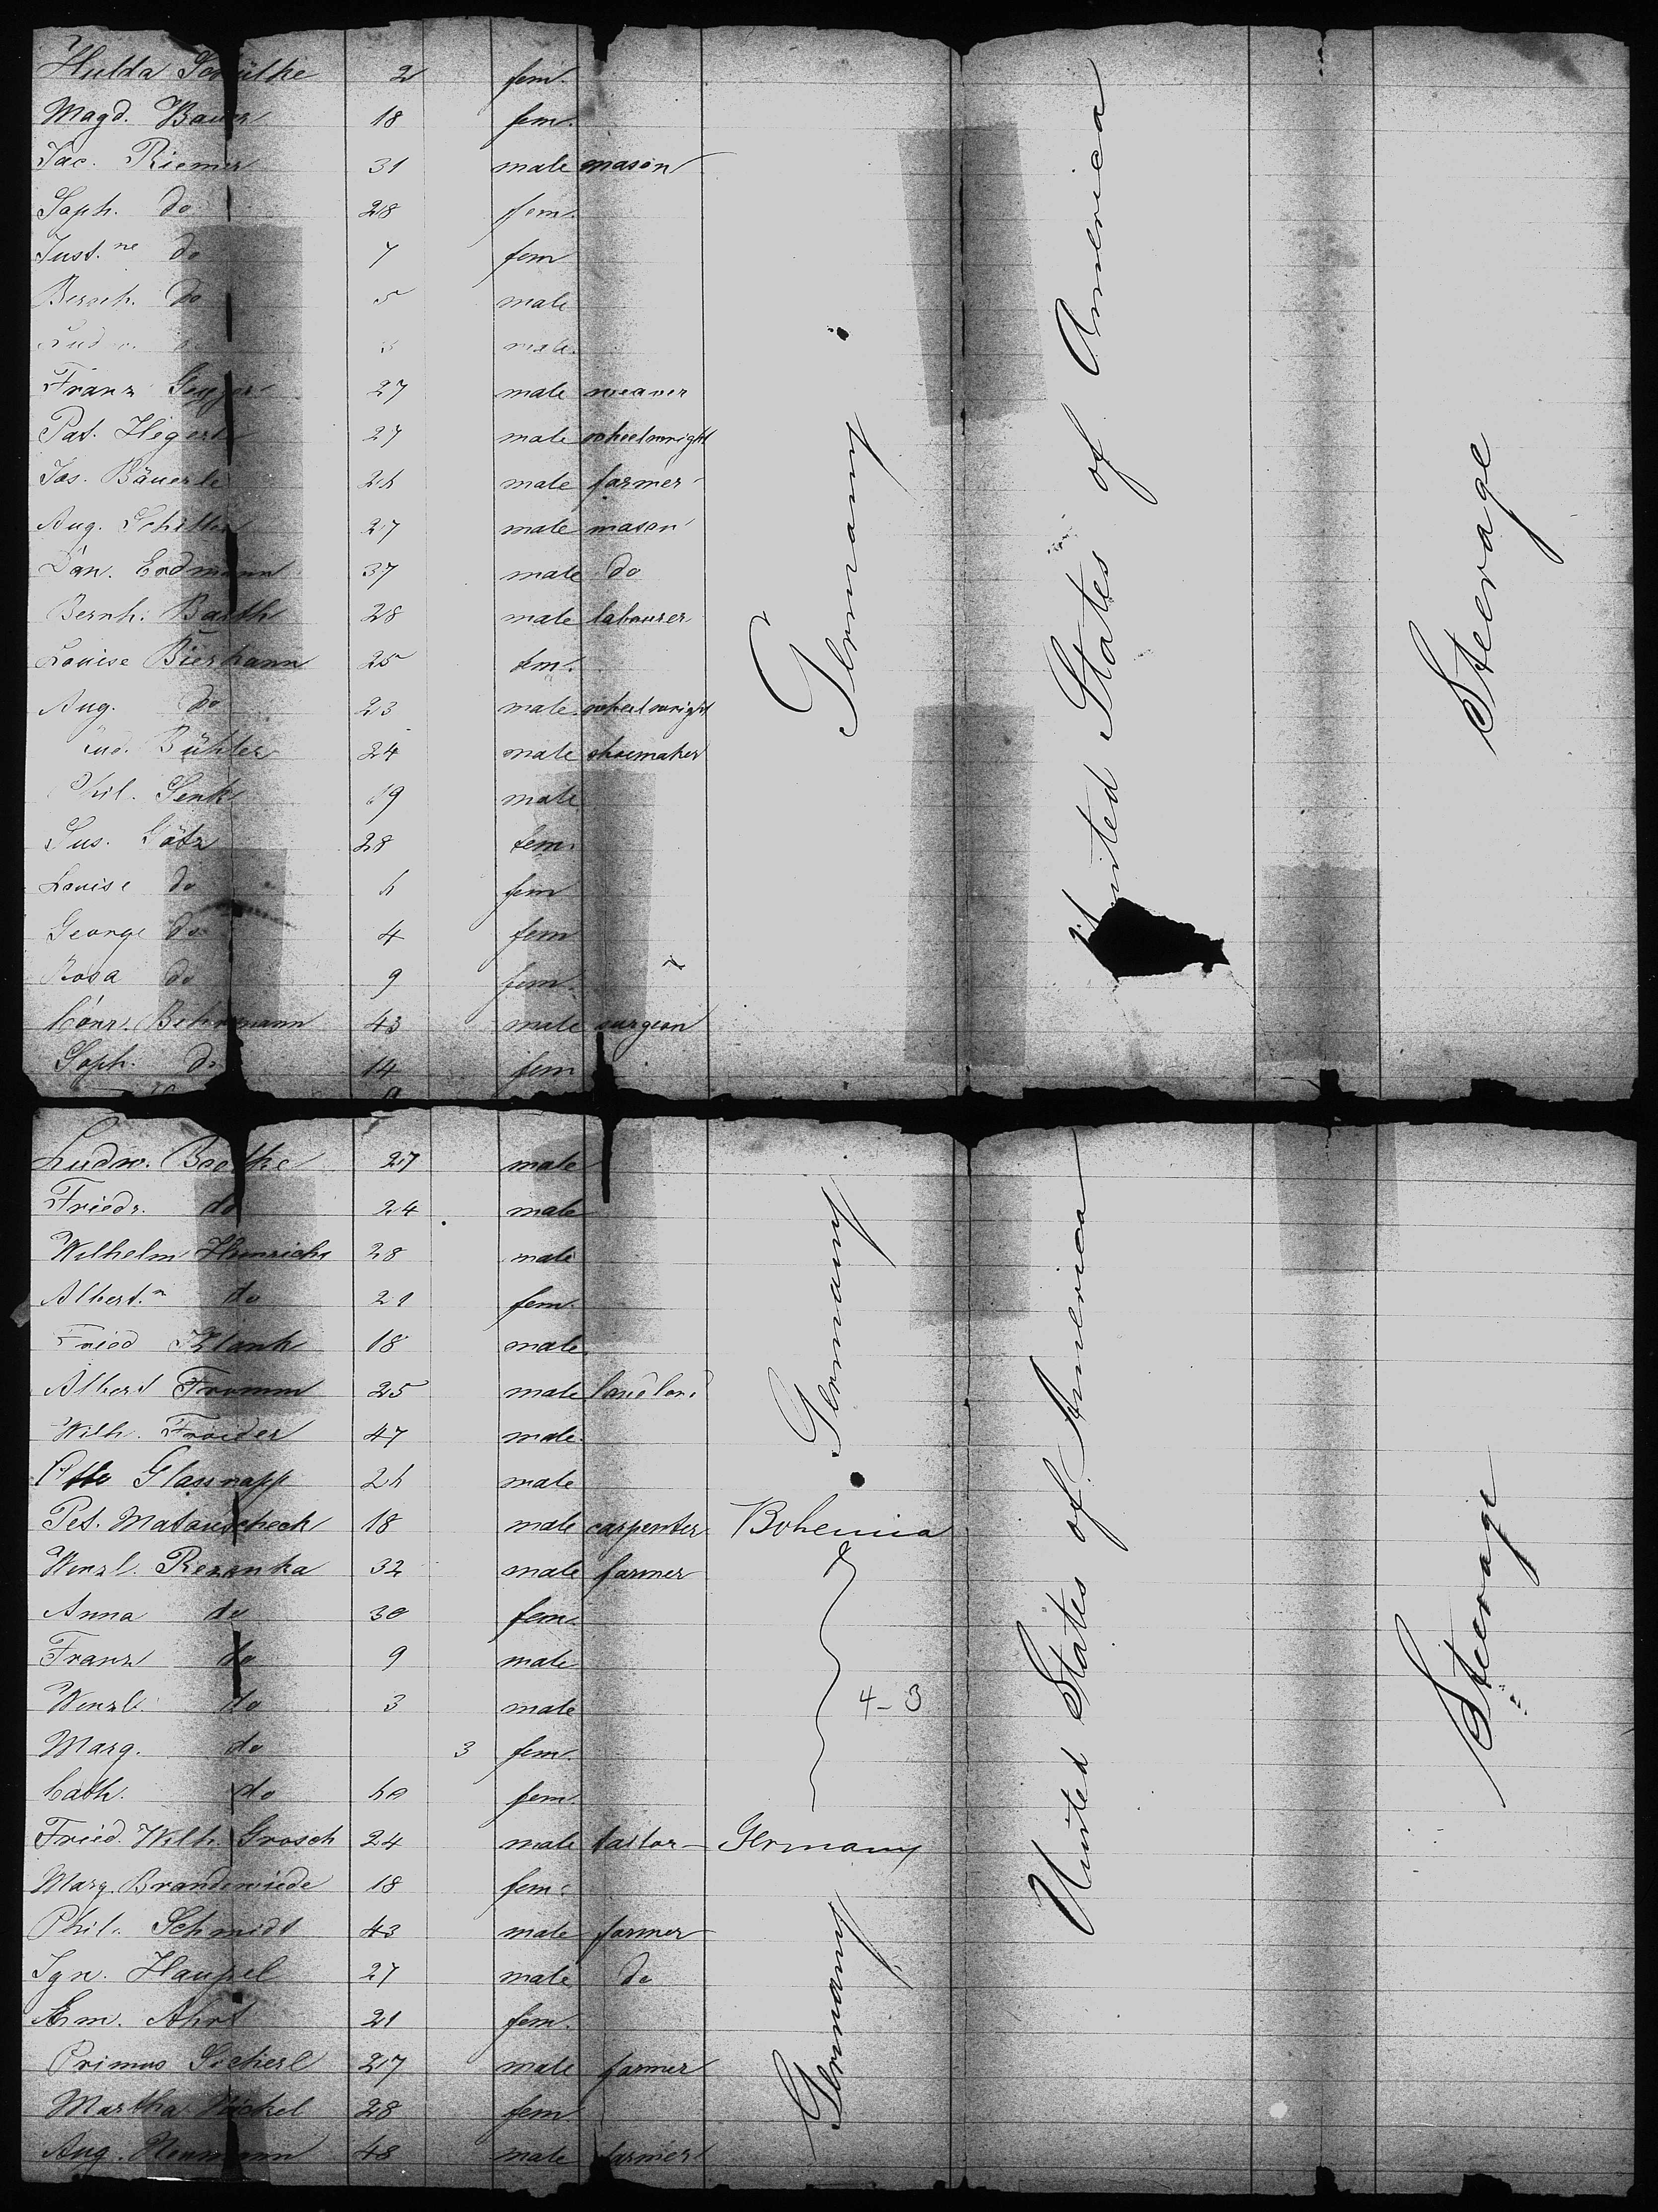 Hulda 2 fem.
Magd. Bauer 18 fem.
Jac. Riemer 31 male mason
Soph. do 28 fem.
Just.ne do 7 fem
do 5 male
3 male.
Franz 27 male weaver
Pat. 27 male wheelwright
Jos. Bäuerle 26 male farmer
Aug. Schiller 27 male mason
Dan. Erdmann 37 male do
Bernh. Barth 28 male labourer
Louise Bierhann 25 fem.
Aug. do 23 male wheelwright
Bühler 24 male shoemaker
Senk 19 male
Sus. Götz 28 fem.
Louise do 6 fem
George do 4 fem
Rosa do 9 fem.
Conr. Behrmann 43 male surgeon
Soph. do 14 fem
Germany
United States of America
Steerage
Ludw. Boethe 27 male
Friedr. do 24 male
Wilhelm Hinrichs 28 male
Albert.n do 29 fem.
Fried Klank 18 male
Albert Fromm 25 male landlord
Wilh. Froider 47 male
Otto Glasnapp 26 male
Pet. Matouscheck 18 male carpenter Bohemia
Wenzl. Rezanka 32 male farmer
Anna do 30 fem.
Franz do 9 male
Wenzl. do 3 male 4-3
Marg. do 3 fem.
Cath. do 60 fem.
Fried. Wilh. Grosch 24 male tailor Germany
Marg. Brandewiede 18 fem.
Phil. Schmidt 43 male farmer
Ign. Haupel 27 male do
Em. Ahrt 21 fem.
Primus 27 male farmer
Martha Nickel 28 fem
Aug. Neumann 48 male farmer
Germany
Germany
United States of America
Steerage